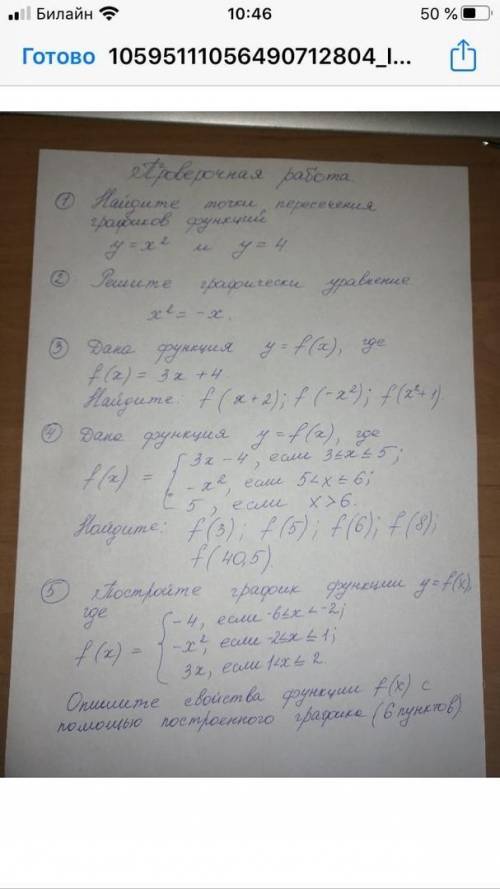 Билайн 10:46 50 %
Готово 10595111056490712804_I...
Проверочная работа
① Найдите точки пересечения
графиков функций
y = x² и y = 4
② Решите графически уравнение
x² = -x.
③ Дана функция y = f(x), где
f(x) = 3x + 4
Найдите: f(x+2); f(-x²); f(x²+1).
④ Дана функция y = f(x), где
3x - 4, если 3≤x≤5;
f(x) = { -x², если 5<x≤6;
5, если x>6.
Найдите: f(3); f(5); f(6); f(8);
f(40,5).
⑤ Постройте график функции y=f(x),
где
-4, если -6≤x<-2;
f(x) = { -x², если -2≤x≤1;
3x, если 1<x≤2.
Опишите свойства функции f(x) с
помощью построенного графика (6 пунктов)